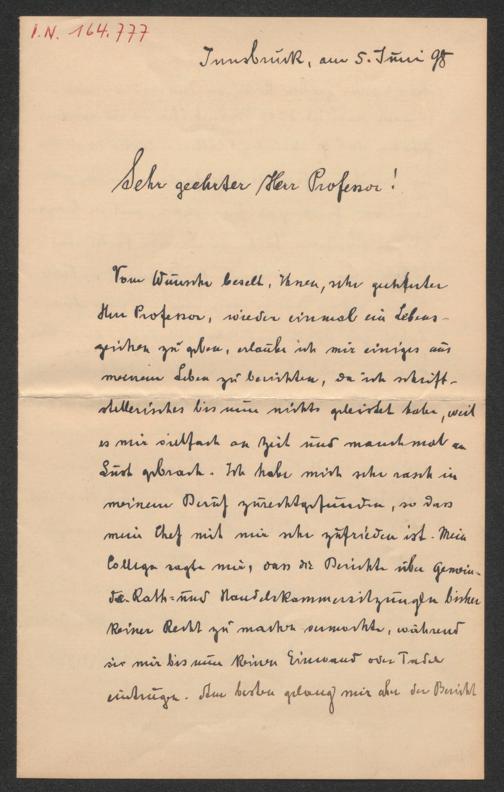 I.N. 164.777
Innsbruck, am 5. Juni 98
Sehr geehrter Herr Professor!
Vom Wunsche beseelt, Ihnen, sehr geehrter
Herr Professor, wieder einmal ein Lebens-
zeichen zu geben, erlaube ich mir einiges aus
meinem Leben zu berichten, da ich schrift-
stellerisches bis nun nichts geleistet habe, weil
es mir vielfach an Zeit und manchmal an
Lust gebrach. Ich habe mich sehr rasch in
meinem Beruf zurechtgefunden, so dass
mein Chef mit mir sehr zufrieden ist. Mein
College sagte mir, dass die Berichte über Gemein-
de-Rath- und Handelskammersitzungen bisher
keiner Recht zu machen vermochte, während
sie mir bis nun keinen Einwand oder Tadel
eintrugen. Am besten gelang mir aber der Bericht